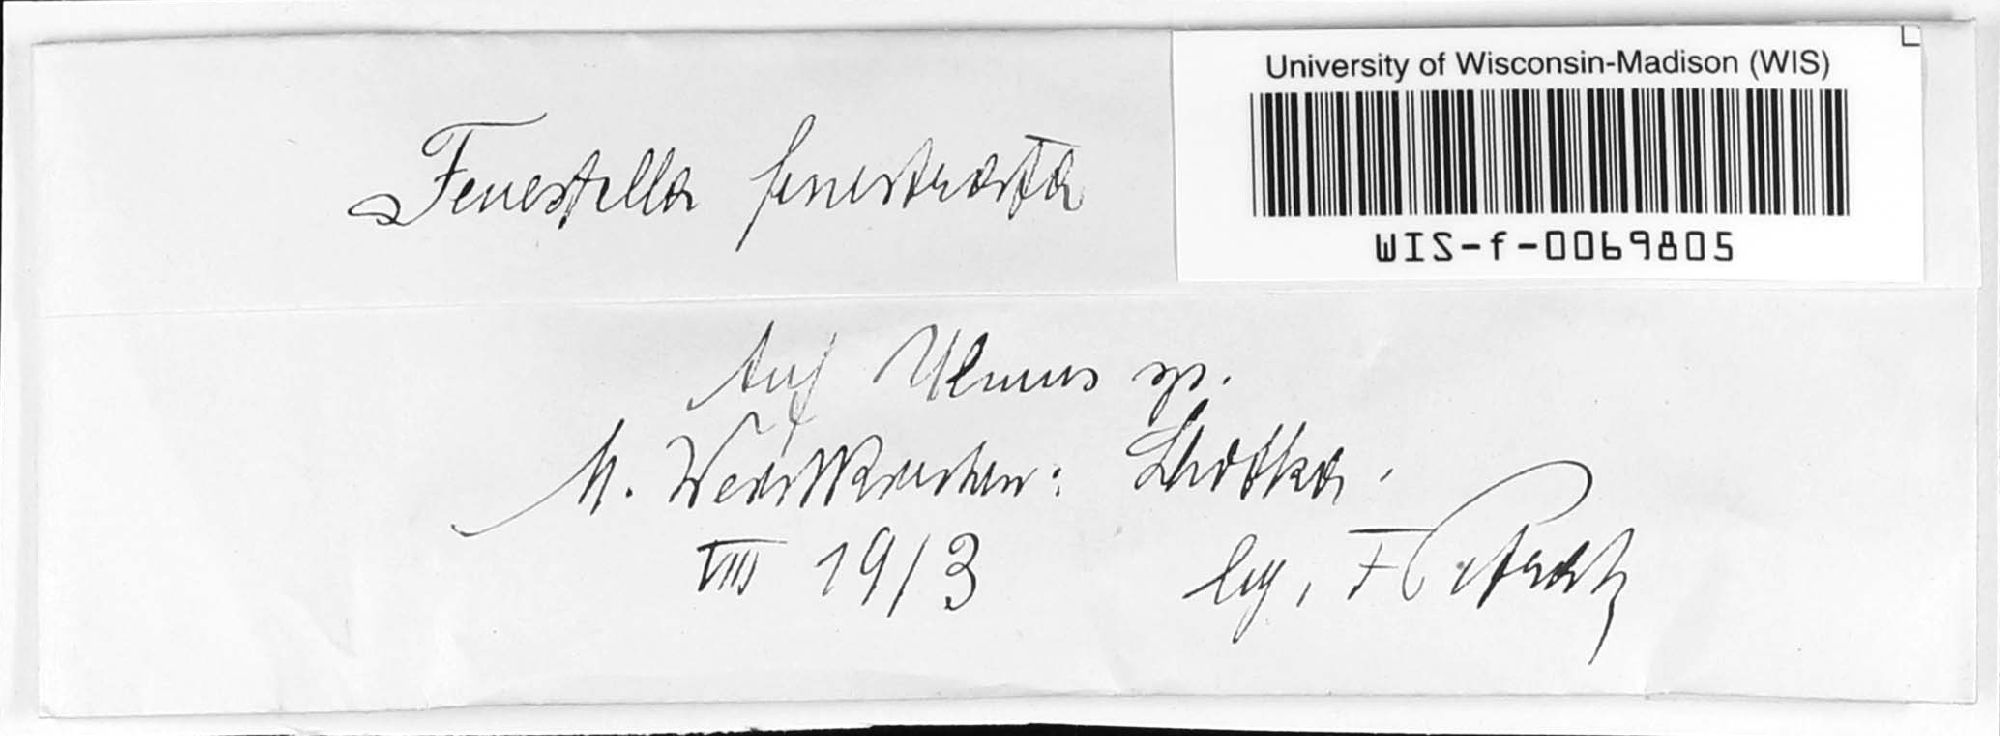 University of Wisconsin-Madison (WIS)
WIS-f-0069805
Fenestella fenestrata
Auf Ulmus sp.
M. Weisskirchen: Lhotka.
VIII 1913 lg. F Petrak